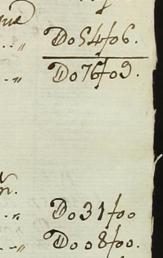 Do 54f06.
Do 76f09.
Do 31f00
Do 08f00.